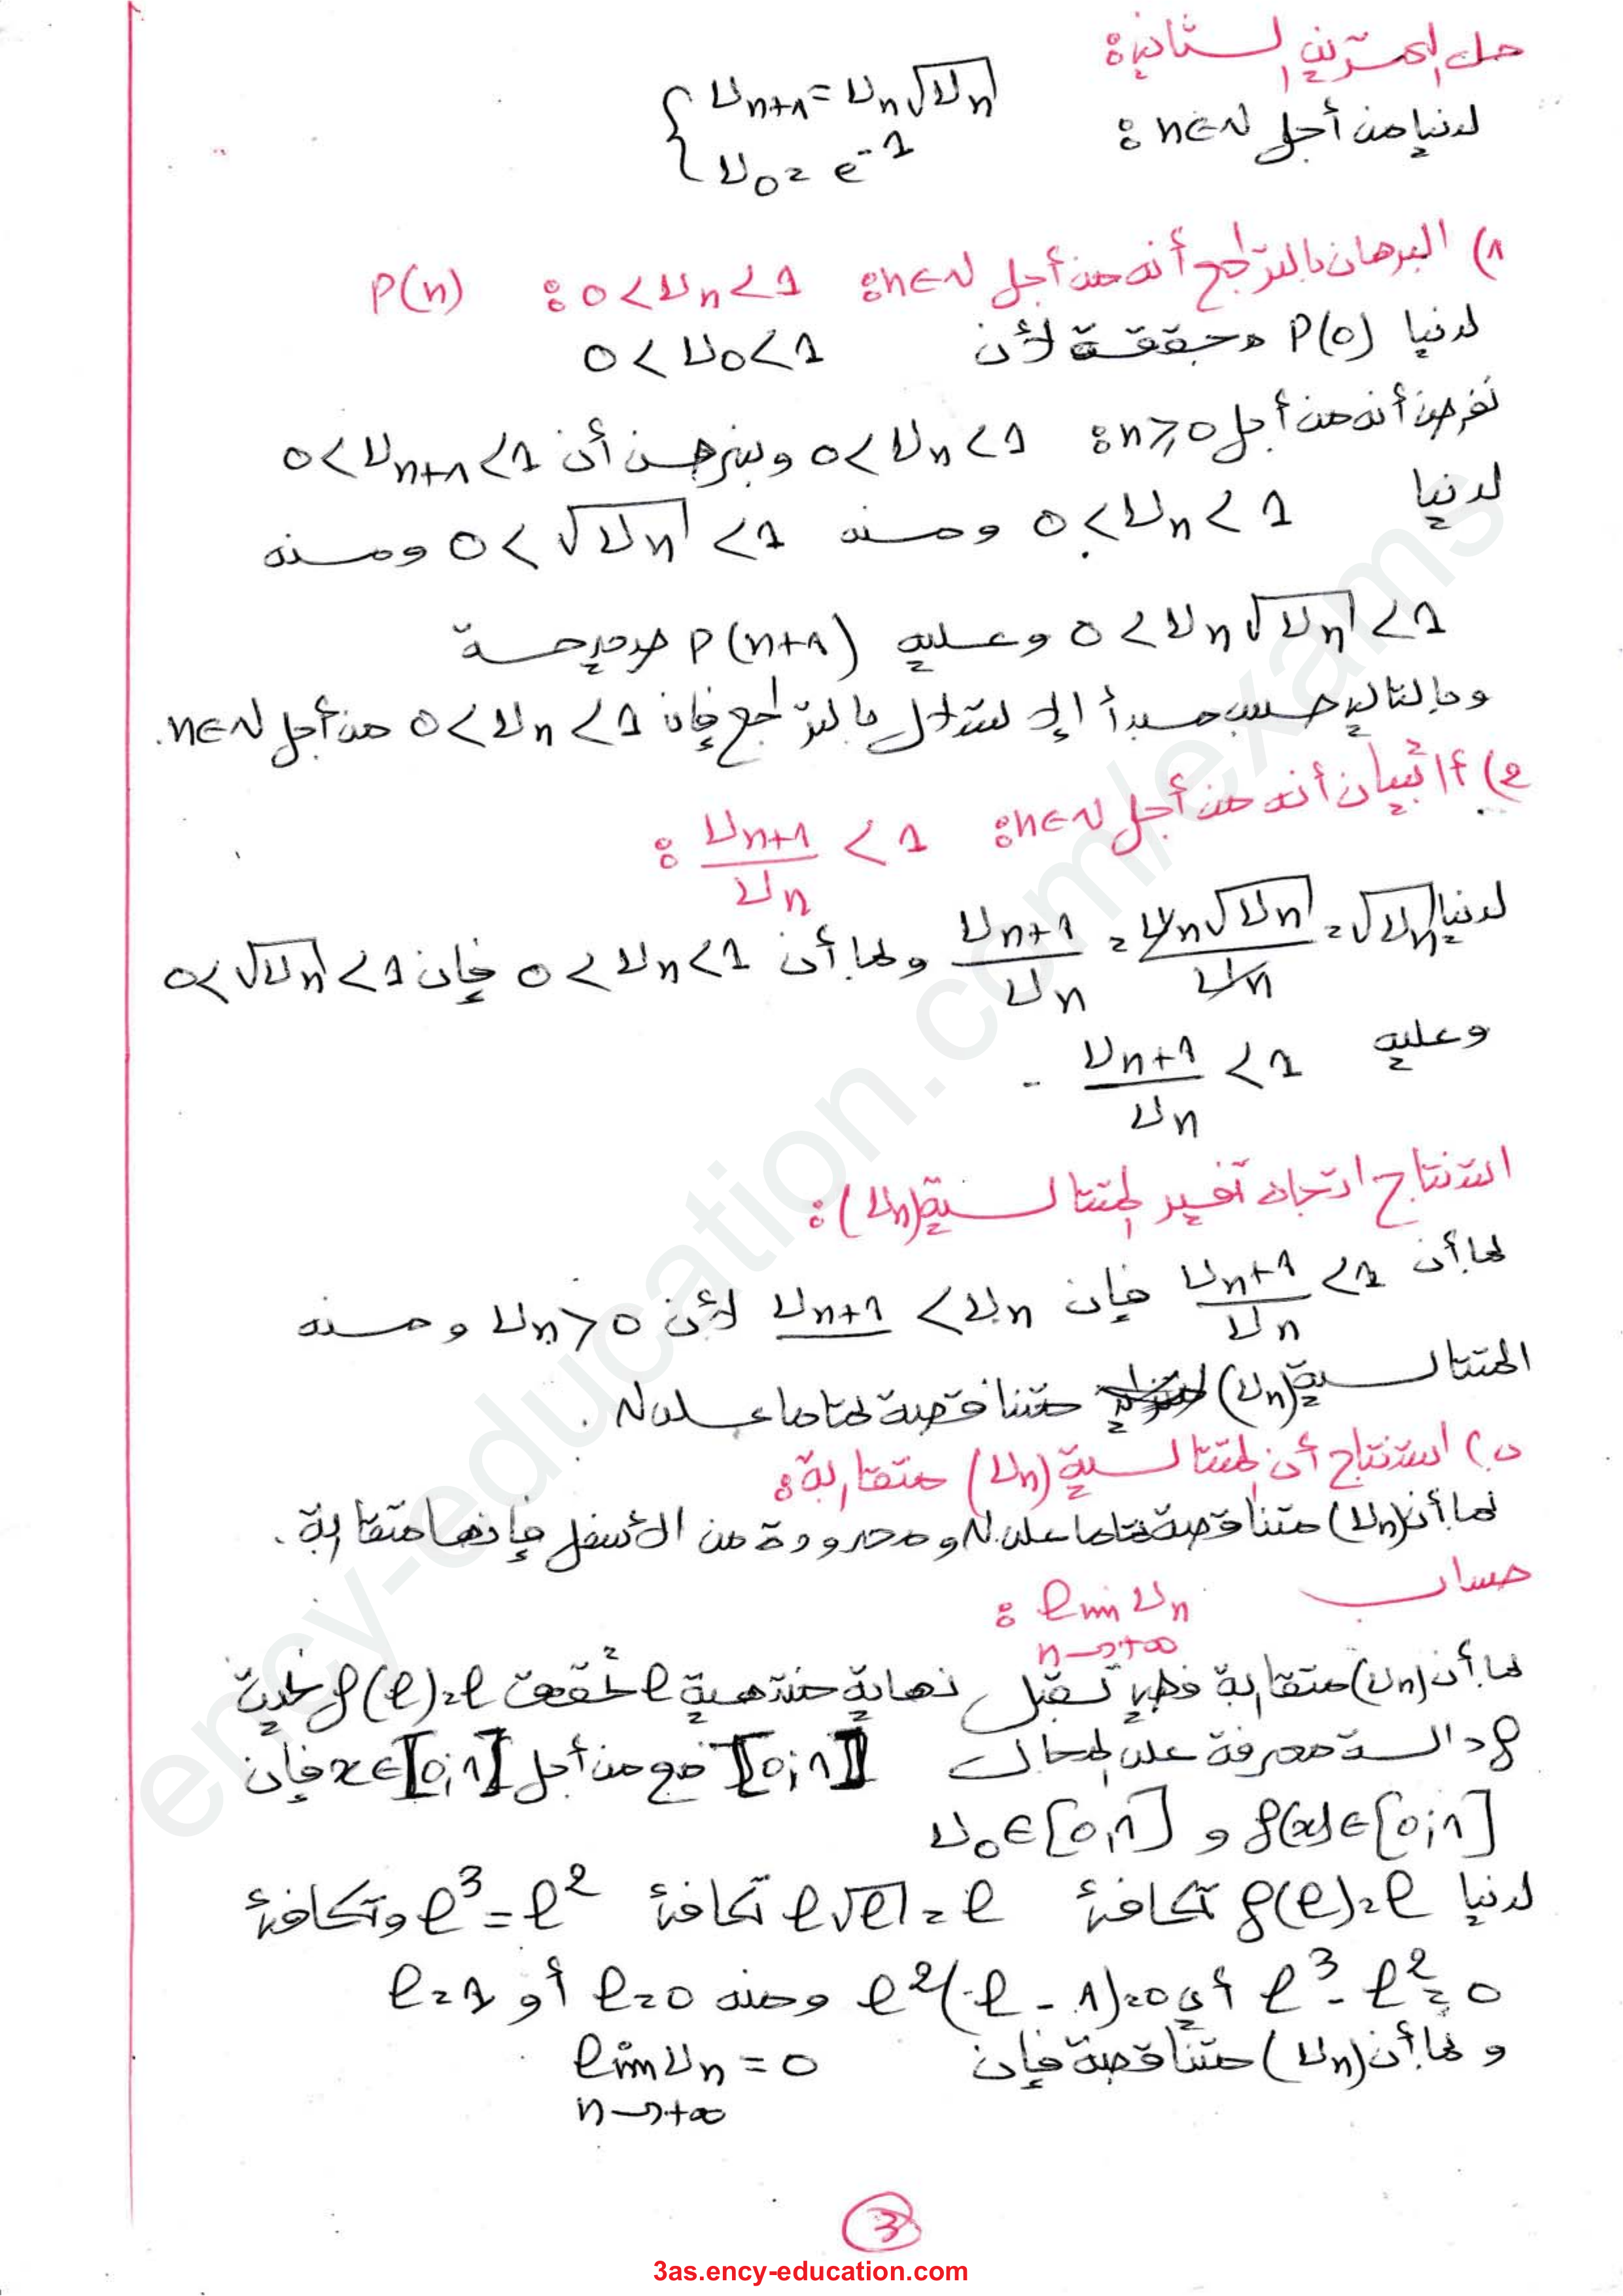 حل التمرين الثاني:
لدينا من أجل n∈ℕ: { U_{n+1} = U_n√U_n
U_0 = e^{-1}
1) البرهان بالتراجع أنه من أجل n∈ℕ: 0 < U_n < 1 : P(n)
لدينا P(0) محققة لأن 0 < U_0 < 1
نفرض أنه من أجل n ≥ 0: 0 < U_n < 1 ونبرهن أن 0 < U_{n+1} < 1
لدينا 0 < U_n < 1 ومنه 0 < √U_n < 1 ومنه
0 < U_n√U_n < 1 وعليه P(n+1) صحيحة
وبالتالي حسب مبدأ الاستدلال بالتراجع فإن 0 < U_n < 1 من أجل n∈ℕ.
2) أ) تبيان أنه من أجل n∈ℕ: U_{n+1}/U_n < 1 :
لدينا U_{n+1}/U_n = U_n√U_n/U_n = √U_n وبما أن 0 < U_n < 1 فإن 0 < √U_n < 1
وعليه U_{n+1}/U_n < 1 .
استنتاج اتجاه تغير المتتالية (U_n):
بما أن U_{n+1}/U_n < 1 فإن U_{n+1} < U_n لأن U_n > 0 ومنه
المتتالية (U_n) متناقصة تماما على ℕ.
ب) استنتاج أن المتتالية (U_n) متقاربة:
بما أن (U_n) متناقصة تماما على ℕ ومحدودة من الأسفل فإنها متقاربة.
حساب lim U_n :
n→+∞
بما أن (U_n) متقاربة فهي تقبل نهاية منتهية l تحقق f(l) = l بحيث
f دالة معرفة على المجال [0;1] مع من أجل x∈[0;1] فإن
f(x)∈[0;1] و U_0∈[0;1]
لدينا f(l) = l تكافئ l√l = l تكافئ l^3 = l^2 وتكافئ
l^3 - l^2 = 0 أي l^2(l - 1) = 0 ومنه l = 0 أو l = 1
وبما أن (U_n) متناقصة فإن lim U_n = 0
n→+∞
3
3as.ency-education.com
ency-education.com/exams